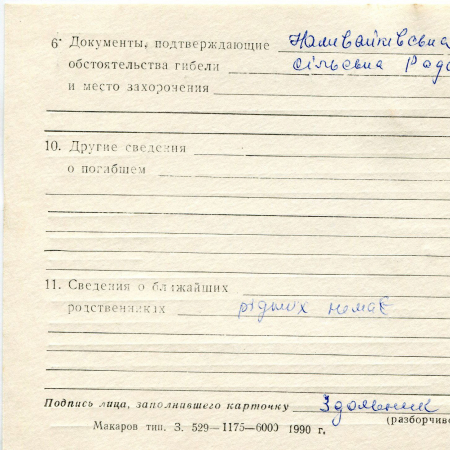 6· Документы, подтверждающие Наливайківська
обстоятельства гибели сільська Рада
и место захоронения
10. Другие сведения
о погибшем
11. Сведения о ближайших
родственниках рідних немає
Подпись лица, заполнившего карточку
(разборчиво
Макаров тип. З. 529—1175—6000 1990 г.